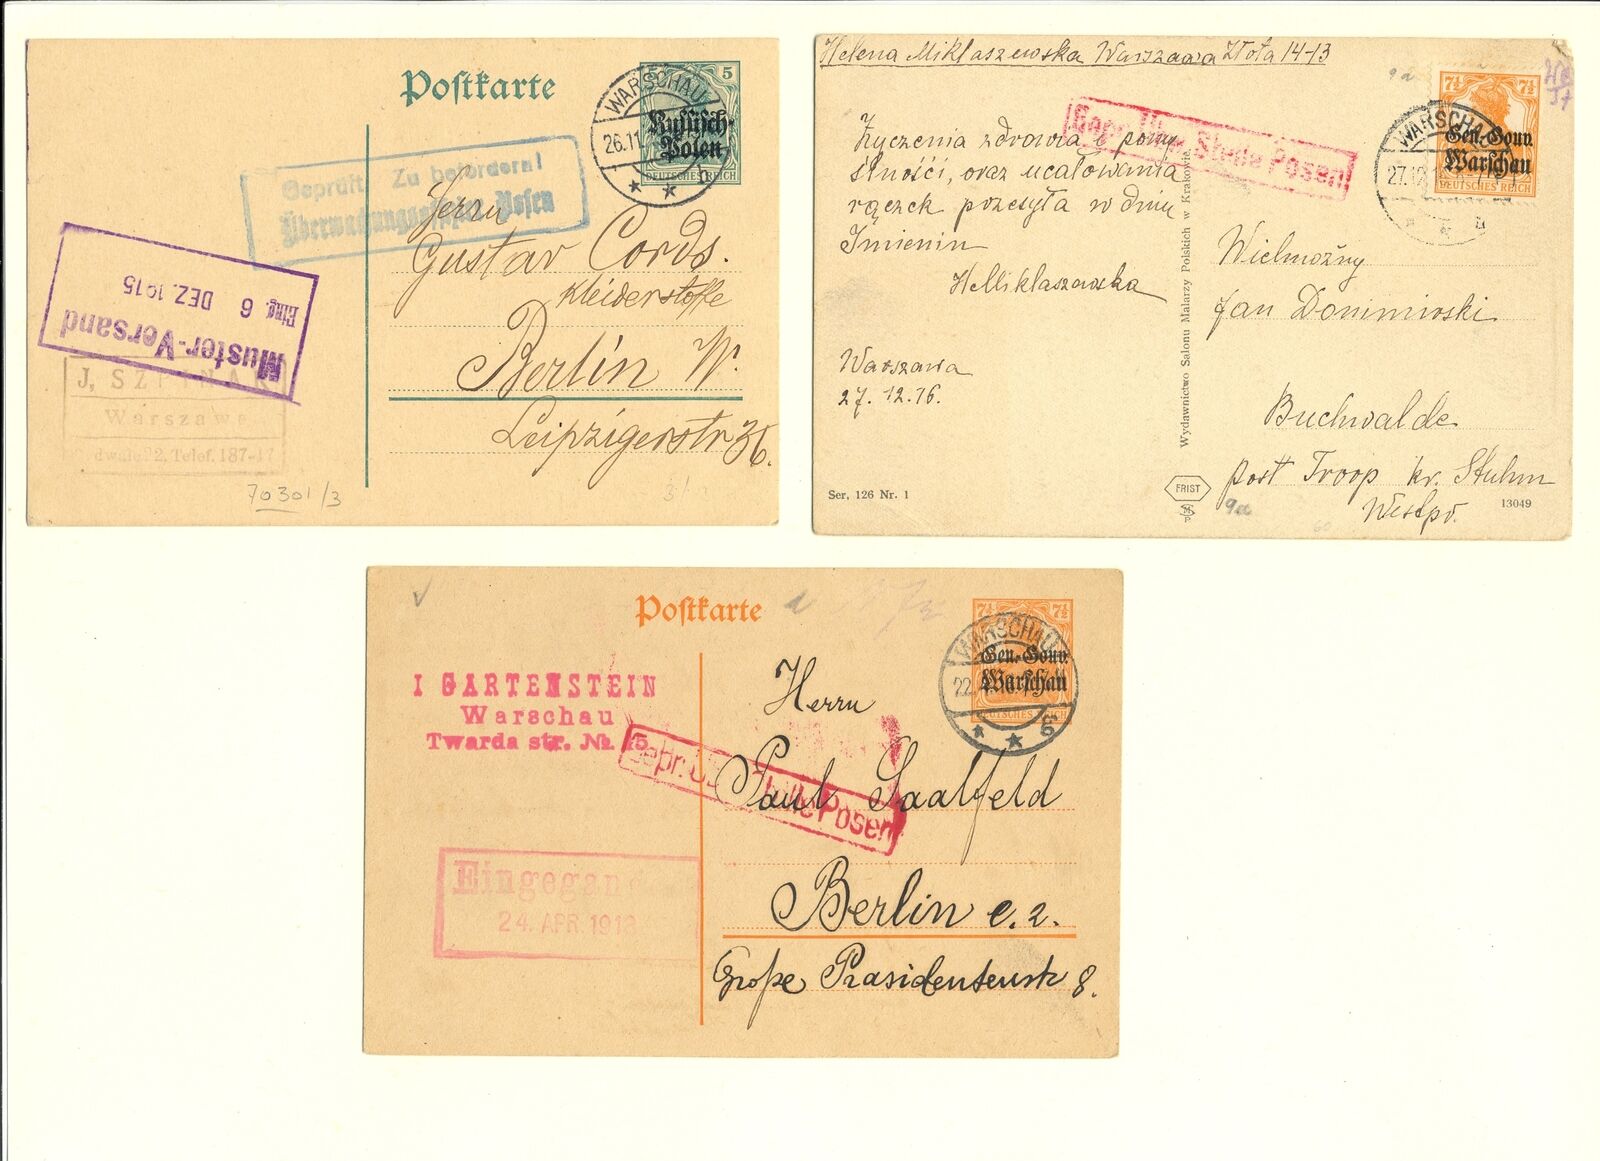 Postkarte
5 5
Russisch-
Polen
DEUTSCHES REICH
WARSCHAU
26.11
Geprüft. Zu befördern!
Überwachungsstelle Posen
Herrn
Gustav Cords.
Kleiderstoffe
Berlin W.
Leipzigerstr 36.
Muster-Versand
Eing. 6 DEZ. 1915
J. SZPINAK
Warszawa
Telef. 187-17
70301/3
Helena Miklaszewska Warszawa Złota 14-13
7½ 7½
Gen.-Gouv.
Warschau
DEUTSCHES REICH
WARSCHAU
27.12.1
Gepr. Üb. Stelle Posen
Życzenia zdrowia i pomy
ślności, oraz ucałowania
rączek przesyła w dniu
Imienin
HMiklaszewska
Warszawa
27.12.16.
Wydawnictwo Salonu Malarzy Polskich w Krakowie.
Wielmożny
Jan Donimirski
Buchwalde
post Troop kr. Stuhm
Westpr.
Ser. 126 Nr. 1
FRIST
9a
13049
Postkarte
7½ 7½
Gen.-Gouv.
Warschau
DEUTSCHES REICH
WARSCHAU
22.
g
I GARTENSTEIN
Warschau
Twarda str. № 15
Gepr. Üb. Stelle Posen
Herrn
Paul Saalfeld
Berlin c. 2.
Große Präsidentenstr 8.
Eingegangen
24. APR. 1918